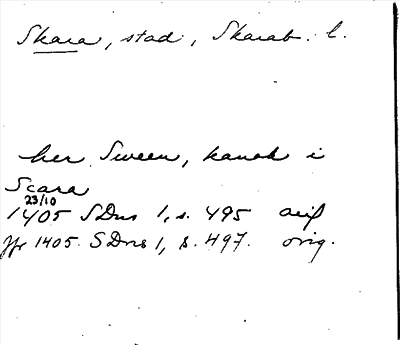 Skara, stad, Skarab. l.
her Sween, kanok i
Scara
23/10
1405 SDns 1, s. 495 orig
Jfr 1405. SDns 1, s. 497. orig.